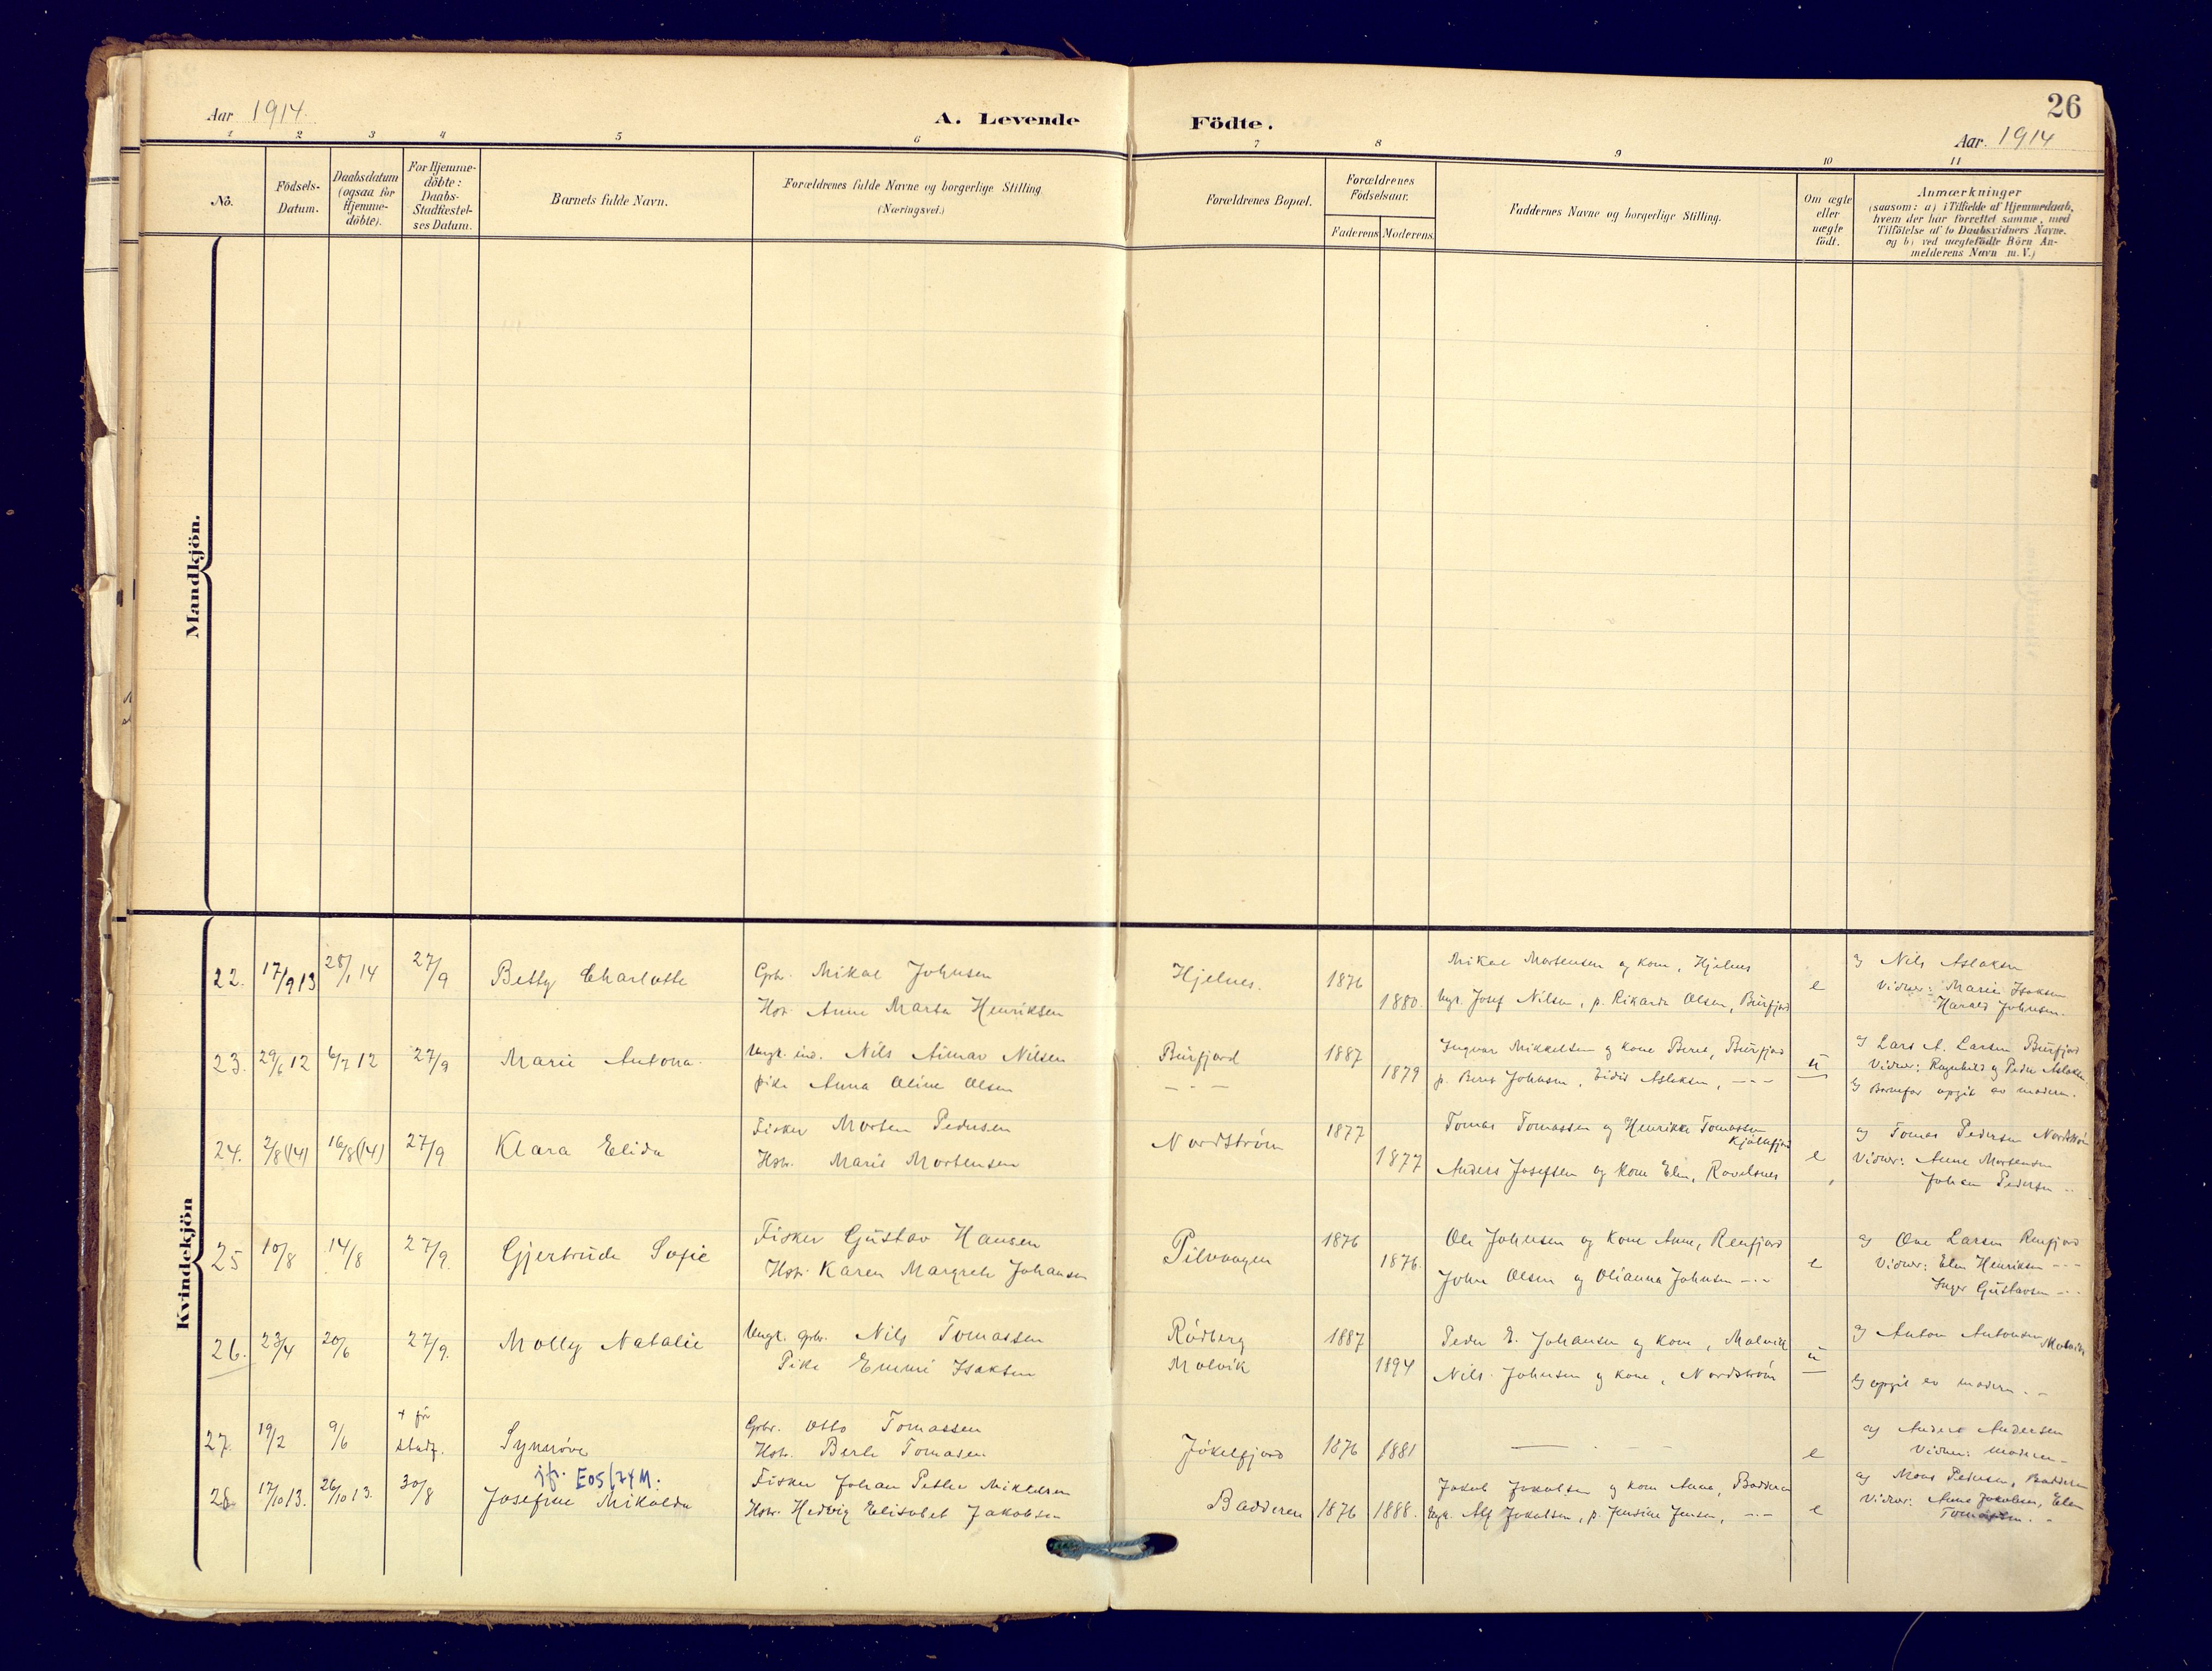 Aar 1914.
A. Levende Födte.
26
Aar. 1914
1 2 3 4 5 6 7 8 9 10 11
No.
Födsels-
Datum.
Daabsdatum
(ogsaa for
Hjemme-
döbte).
For Hjemme-
döbte:
Daabs-
Stadfæstel-
ses Datum.
Barnets fulde Navn.
Forældrenes fulde Navne og borgerlige Stilling.
(Næringsvei.)
Forældrenes Bopæl.
Forældrenes
Födselsaar.
Faderens. Moderens.
Faddernes Navne og borgerlige Stilling.
Om ægte
eller
uægte
födt.
Anmærkninger
(saasom: a) i Tilfælde af Hjemmedaab,
hvem der har forrettet samme, med
Tilföielse af to Daabsvidners Navne.
og b) ved uægtefödte Börn An-
melderens Navn m.V.)
Mandkjön.
Kvindekjön
22. 17/9 13 28/1 14 27/9 Betty Charlotte
Gbr. Mikal Johnsen
Hstr. Anne Marta Henriksen
Hjelnes. 1876 1880.
Mikal Mortensen og kone, Hjelnes
Ungk. Josef Nilsen, p. Rikarda Olsen, Burfjord
e
a) Nils Aslaksen
Vidner: Marie Isaksen
Harald Johnsen.
23. 29/6 12 6/7 12 27/9 Marie Antona.
Ungk. ind. Nils Aimar Nilsen
pike Anna Oline Olsen
Burfjord
- - -
1887 1879
Ingvar Mikkelsen og kone Beret, Burfjord
p. Beret Johnsen, Eidis Aslaksen, - - -
u
a) Lars A. Larsen Burfjord
Vidner: Ragnhild og Peder Aslaksen
b) Barnefar opgit av moderen.
24. 2/8 (14) 16/8 (14) 27/9 Klara Elida
Fisker Morten Pedersen
Hstr. Marie Mortensen
Nordström 1877 1877
Tomas Tomassen og Henrikka Tomassen
Anders Josefsen og kone Elen, Ravelsnes
e
a) Tomas Pedersen Nordström
Vidner: Anne Mortensen
Johan Pedersen
25 10/8 14/8 27/9. Gjertrude Sofie
Fisker Gustav Hansen
Hstr. Karen Margrete Johansen
Pilvaagen 1876 1876.
Ole Johnsen og Kone Anne, Renfjord
John Olsen og Olianna Johnsen - - -
e
a) Ove Larsen Renfjord
Vidner: Elen Henriksen - - -
Inger Gustavsen - - -
26. 23/4 20/6 27/9. Molly Natalie
Ungk. gbr. Nils Tomassen
Pike Emmi Isaksen
Rödberg
Molvik
1887 1894
Peder E. Johansen og kone, Malvik
Nils Johnsen og kone, Nordström
u
a) Anton Antonsen Malvik
b) opgit av moderen. -
27. 19/2 9/6 + før stadf. Synnöve
Gbr. Otto Tomassen
Hstr. Berte Tomasen
Jökelfjord 1876 1881
e
a) Anders Andersen
Vidner: moderen
28 17/10 13. 26/10 13. 30/8
jfr. E05/74 M.
Josefine Mikalda
Fisker Johan Petter Mikkelsen
Hstr. Hedvig Elisabet Jakobsen
Badderen 1876 1888.
Jakob Jakobsen og kone Anne, Badderen
Ungk. Alf Jakobsen, p. Jensine Jensen, - - -
e
a) Mons Pedersen, Badderen
Vidner: Anne Jakobsen, Elen
Tomassen. -